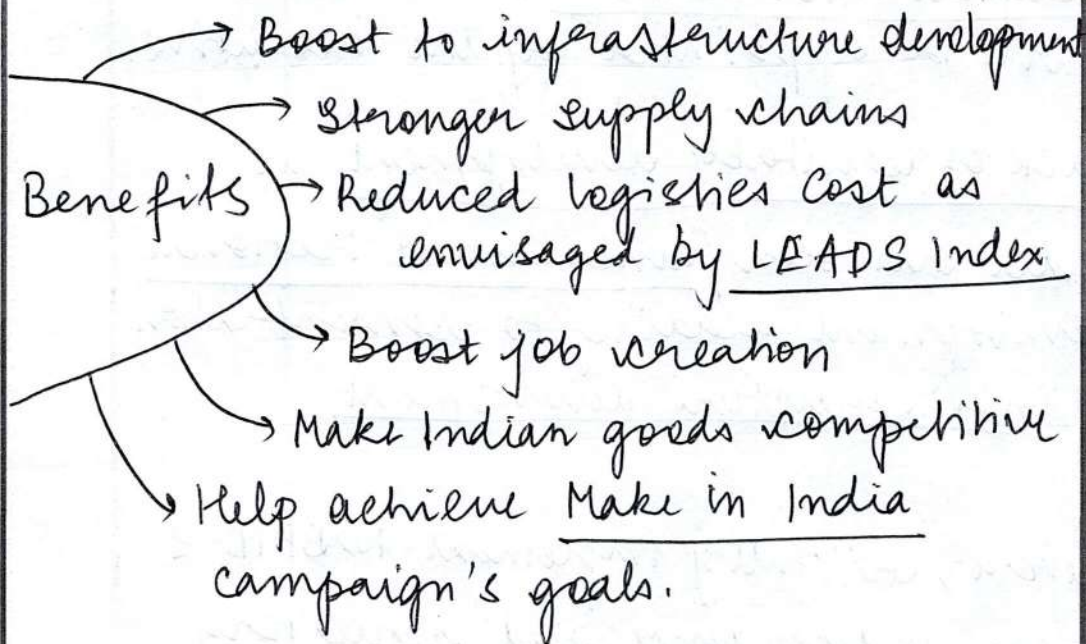 Boost to infrastructure development
Stronger supply chains
Benefits
Reduced logistics cost as
envisaged by LEADS Index
Boost job creation
Make Indian goods competitive
Help achieve Make in India
campaign's goals.